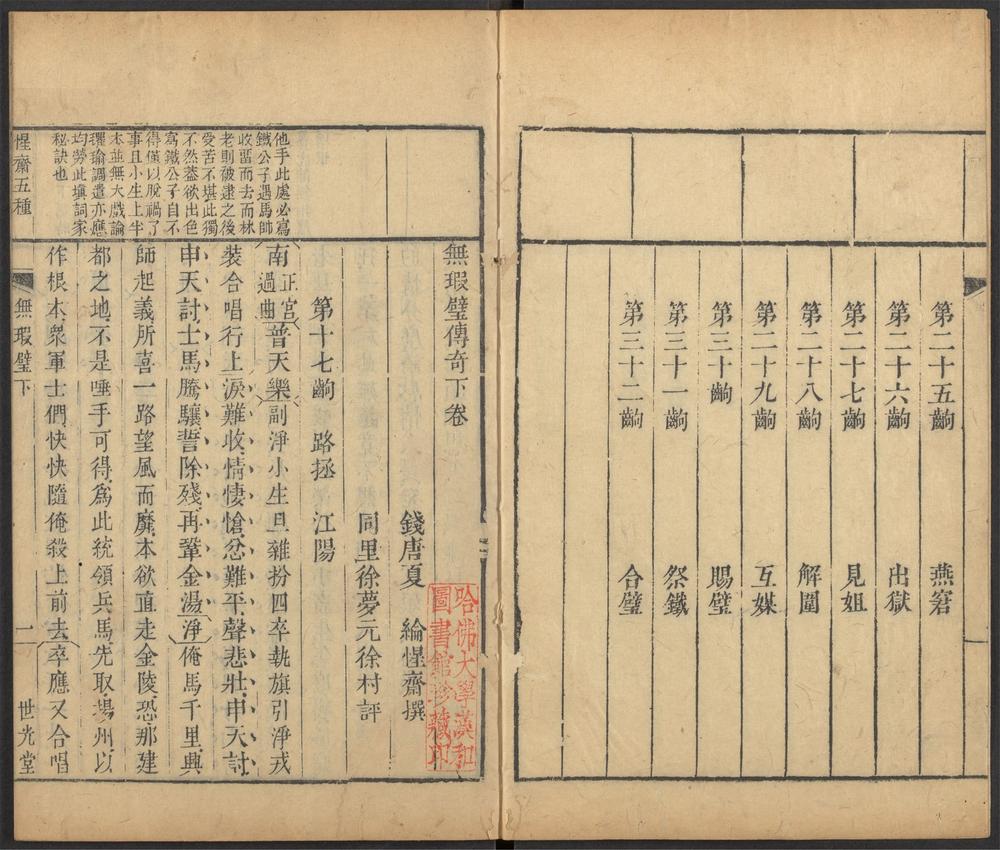 第二十五齣 燕窘
第二十六齣 出獄
第二十七齣 見姐
第二十八齣 解圍
第二十九齣 互媒
第三十齣 賜璧
第三十一齣 祭鐵
第三十二齣 合璧
無瑕璧傳奇下卷
錢唐夏 綸惺齋撰
同里徐夢元徐村評
哈佛大學漢和
圖書館珍藏印
第十七齣 路拯 江陽
他手此處必寫
鐵公子遇馬師
收畱而去而林
老則破逮之後
受苦不堪此獨
不然蓋欲出色
寫鐵公子自不
得僅以脫禍了
事且小生上半
本並無大戲論
璍瑜調遣亦應
均勞此塡詞家
秘訣也
南正宮過曲普天樂副淨小生旦雜扮四卒執旗引淨戎
裝合唱行上淚難收情悽愴忿難平聲悲壯申天討
申天討士馬騰驤誓除殘再鞏金湯淨俺馬千里興
師起義所喜一路望風而靡本欲直走金陵恐那建
都之地不是唾手可得爲此統領兵馬先取揚州以
作根本衆軍士們快快隨俺殺上前去卒應又合唱
惺齋五種 無瑕璧下 一 世光堂